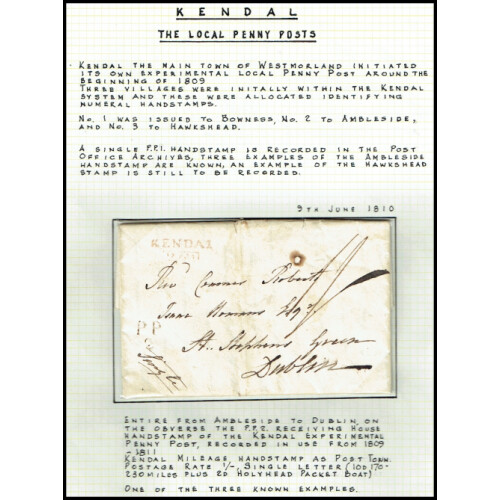 KENDAL
THE LOCAL PENNY POSTS
KENDAL THE MAIN TOWN OF WESTMORLAND INITIATED
ITS OWN EXPERIMENTAL LOCAL PENNY POST AROUND THE
BEGINNING OF 1809
THREE VILLAGES WERE INITALLY WITHIN THE KENDAL
SYSTEM AND THESE WERE ALLOCATED IDENTIFYING
NUMERAL HANDSTAMPS.
No. 1 WAS ISSUED TO BOWNESS, No. 2 TO AMBLESIDE,
AND No. 3 TO HAWKSHEAD.
A SINGLE P.P.1. HANDSTAMP IS RECORDED IN THE POST
OFFICE ARCHIVES, THREE EXAMPLES OF THE AMBLESIDE
HANDSTAMP ARE KNOWN, AN EXAMPLE OF THE HAWKSHEAD
STAMP IS STILL TO BE RECORDED.
9TH JUNE 1810
KENDAL
Revd Roberts
Esqr
St. Stephens Green
PP
Single
Dublin
ENTIRE FROM AMBLESIDE TO DUBLIN, ON
THE OBVERSE THE P.P.2. RECEIVING HOUSE
HANDSTAMP OF THE KENDAL EXPERIMENTAL
PENNY POST, RECORDED IN USE FROM 1809
-1811.
KENDAL MILEAGE, HANDSTAMP AS POST TOWN.
POSTAGE RATE 1/-, SINGLE LETTER (10D 170-
230 MILES PLUS 2D HOLYHEAD PACKET BOAT)
ONE OF THE THREE KNOWN EXAMPLES.